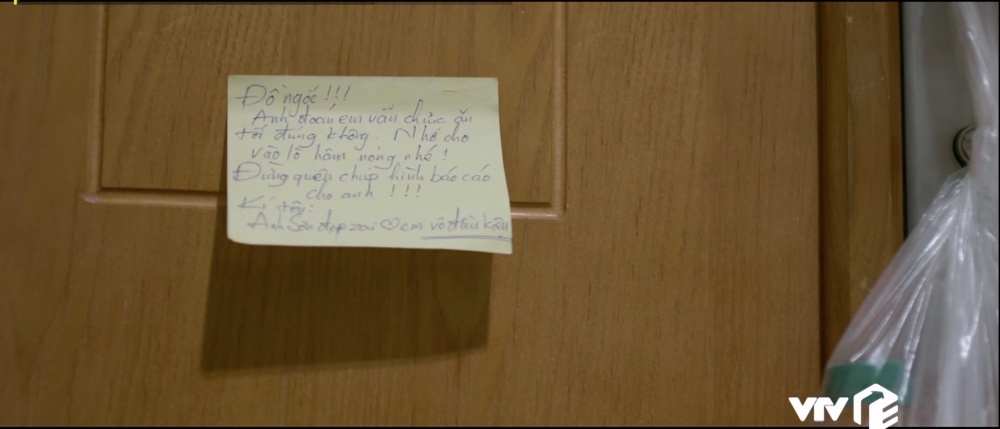 Đồ ngốc!!!
Anh đoán em vẫn chưa ăn
tối đúng không. Nhớ cho
vào lò hâm nóng nhé!
Đừng quên chụp hình báo cáo
cho anh !!!
Kí tên:
Anh Sơn đẹp zai ♡ em vô điều kiện
VTV